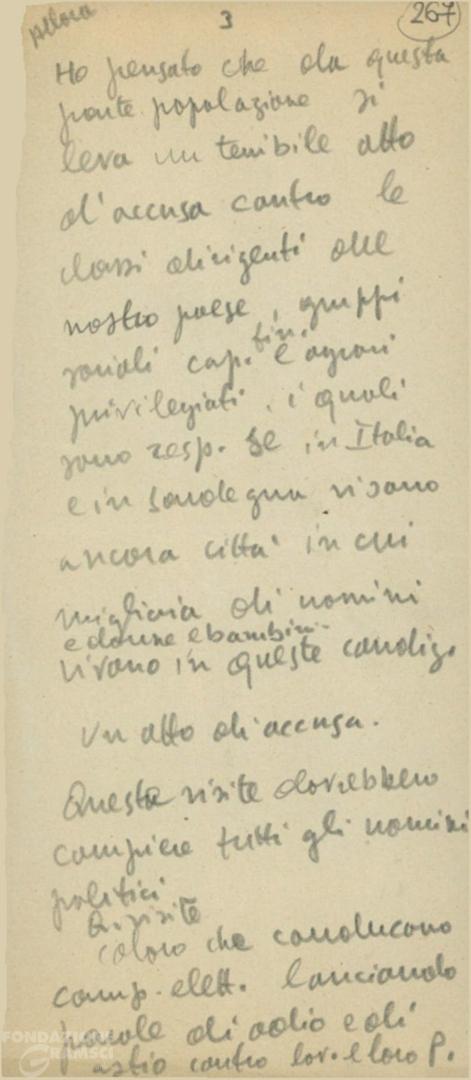 allora
3
267
Ho pensato che da questa
parte popolazione si
leva un terribile atto
d'accusa contro le
classi dirigenti del
nostro paese, gruppi
sociali cap. fin. e agrari
privilegiati, i quali
sono resp. se in Italia
e in Sardegna vi sono
ancora città in cui
migliaia di uomini
e donne e bambini
vivano in queste condiz.
Un atto di accusa.
Questa visite dovrebbero
compiere tutti gli uomini
politici
Q. visite
coloro che conducono
camp. elett. lanciando
parole di odio e di
astio contro lav. e loro P.
FONDAZIONE
GRAMSCI